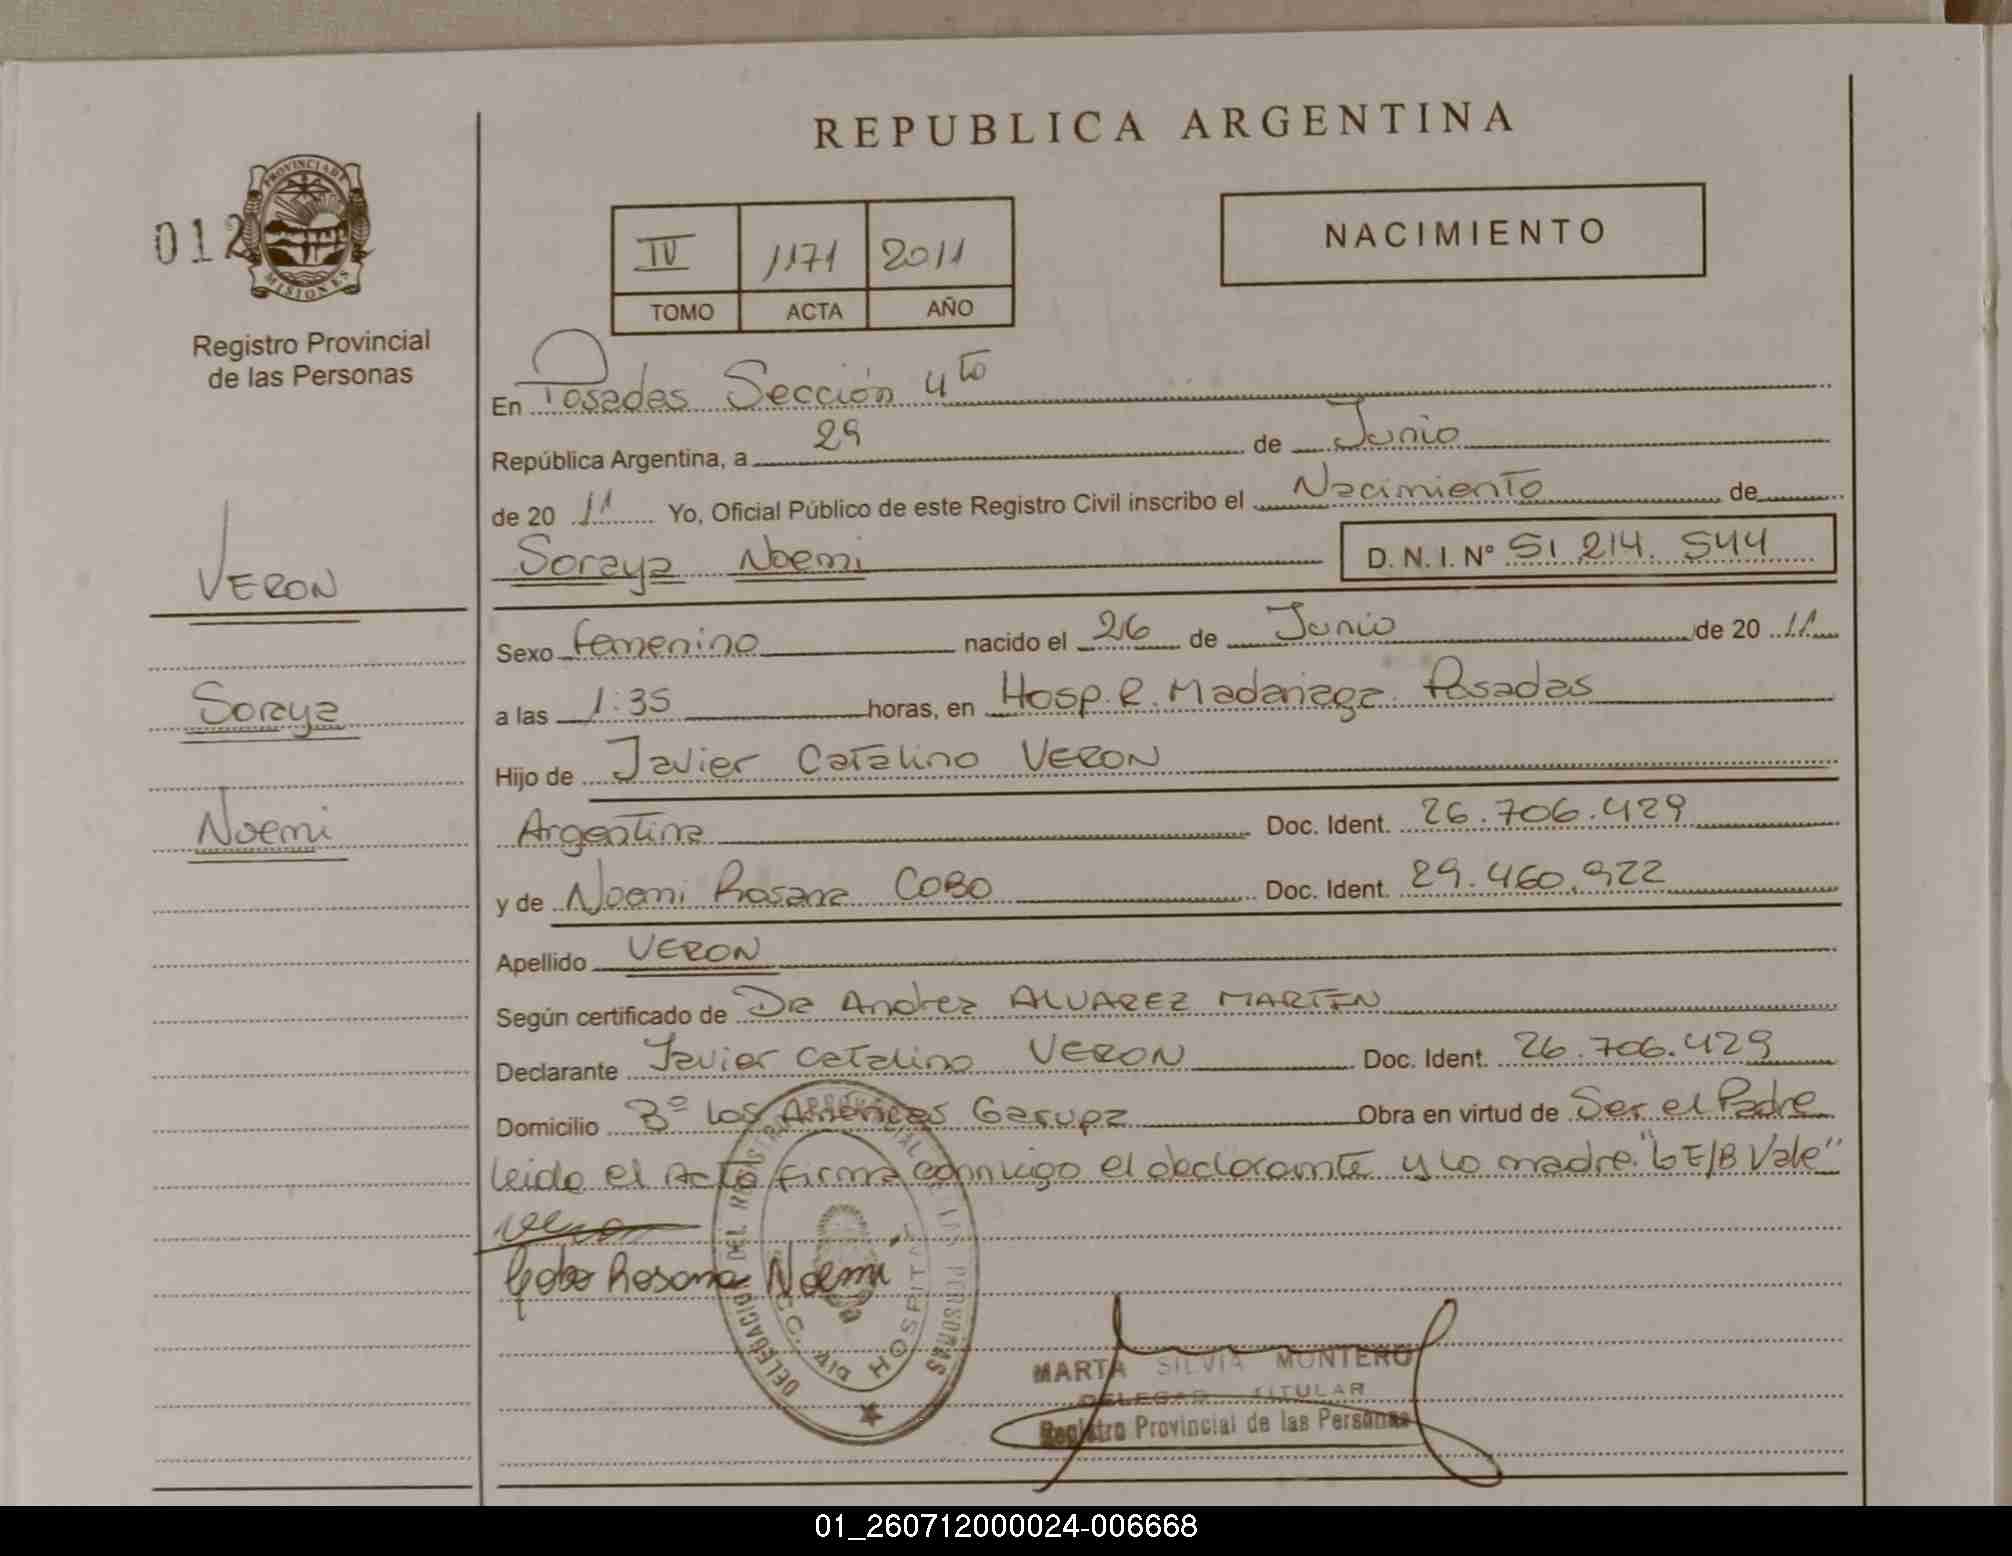 REPUBLICA ARGENTINA
PROVINCIA DE
MISIONES
012
Registro Provincial
de las Personas
IV 1171 2011
TOMO ACTA AÑO
NACIMIENTO
En Posadas Sección 4to
República Argentina, a 29 de Junio
de 20 11 Yo, Oficial Público de este Registro Civil inscribo el Nacimiento de
Soraya Noemi D.N.I. Nº 51 214. 544
VERON
Soraya
Noemi
Sexo femenino nacido el 26 de Junio de 20 11
a las 1:35 horas, en Hosp. R. Madariaga. Posadas
Hijo de Javier Catalino VERON
Argentina Doc. Ident. 26.706.429
y de Noemi Rosana COBO Doc. Ident. 29.460.922
Apellido VERON
Según certificado de Dra Andrea ALVAREZ MARTIN
Declarante Javier Catalino VERON Doc. Ident. 26.706.429
Domicilio Bº Las Americas Garupa Obra en virtud de Ser el Padre
leida el Acta firma conmigo el declarante y la madre. E/B Vale"
Cobo Rosana Noemi
DELEGACION DEL REGISTRO PROVINCIAL DE LAS PERSONAS
HOSPITAL
MARTA SILVIA MONTERO
DELEGAD TITULAR
Registro Provincial de las Personas
01_260712000024-006668